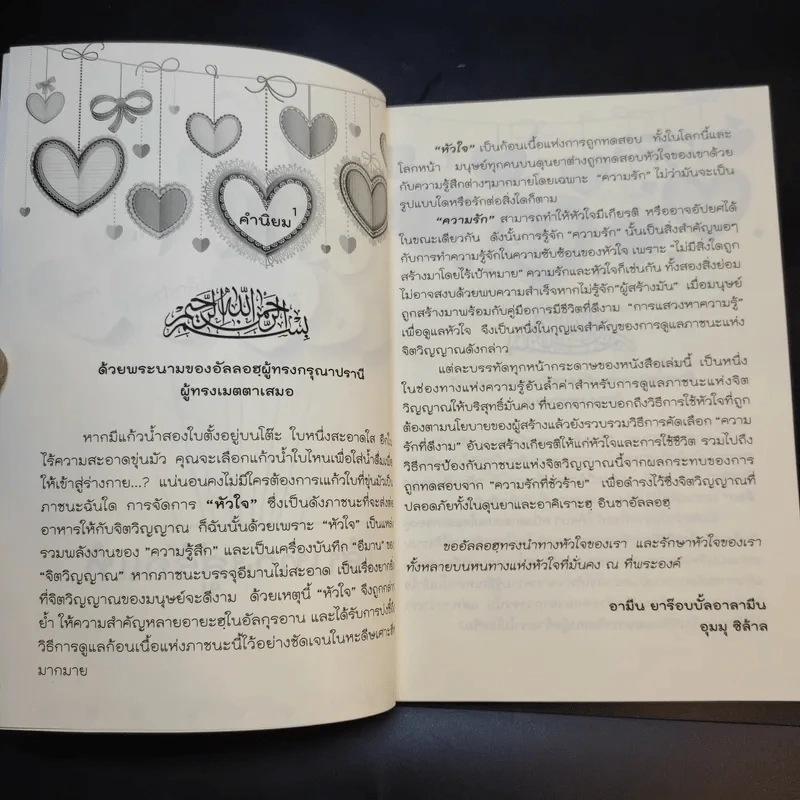 คำนิยม 1
بسم الله الرحمن الرحيم
ด้วยพระนามของอัลลอฮฺผู้ทรงกรุณาปรานี
ผู้ทรงเมตตาเสมอ
หากมีแก้วน้ำสองใบตั้งอยู่บนโต๊ะ ใบหนึ่งสะอาดใส อีกใบ
ไร้ความสะอาดขุ่นมัว คุณจะเลือกแก้วน้ำใบไหนเพื่อใส่น้ำดื่ม
ให้เข้าสู่ร่างกาย...? แน่นอนคงไม่มีใครต้องการแก้วใบที่ขุ่นมัวเป็น
ภาชนะฉันใด การจัดการ "หัวใจ" ซึ่งเป็นดังภาชนะที่จะส่งต่อ
อาหารให้กับจิตวิญญาณ ก็ฉันนั้นด้วยเพราะ "หัวใจ" เป็นแหล่ง
รวมพลังงานของ "ความรู้สึก" และเป็นเครื่องบันทึก "อีมาน" ของ
"จิตวิญญาณ" หากภาชนะบรรจุอีมานไม่สะอาด เป็นเรื่องยาก
ที่จิตวิญญาณของมนุษย์จะดีงาม ด้วยเหตุนี้ "หัวใจ" จึงถูกกล่าว
ย้ำ ให้ความสำคัญหลายอายะฮฺในอัลกุรอาน และได้รับการบ่งชี้
วิธีการดูแลก้อนเนื้อแห่งภาชนะนี้ไว้อย่างชัดเจนในหะดีษเศาะฮี้
มากมาย
"หัวใจ" เป็นก้อนเนื้อแห่งการถูกทดสอบ ทั้งในโลกนี้และ
โลกหน้า มนุษย์ทุกคนบนดุนยาต่างถูกทดสอบหัวใจของเขาด้วย
กับความรู้สึกต่างๆมากมายโดยเฉพาะ "ความรัก" ไม่ว่ามันจะเป็น
รูปแบบใดหรือรักต่อสิ่งใดก็ตาม
"ความรัก" สามารถทำให้หัวใจมีเกียรติ หรืออาจอัปยศได้
ในขณะเดียวกัน ดังนั้นการรู้จัก "ความรัก" นั้นเป็นสิ่งสำคัญพอๆ
กับการทำความรู้จักในความซับซ้อนของหัวใจ เพราะ "ไม่มีสิ่งใดถูก
สร้างมาโดยไร้เป้าหมาย" ความรักและหัวใจก็เช่นกัน ทั้งสองสิ่งย่อม
ไม่อาจสงบด้วยพบความสำเร็จหากไม่รู้จัก"ผู้สร้างมัน" เมื่อมนุษย์
ถูกสร้างมาพร้อมกับคู่มือการมีชีวิตที่ดีงาม "การแสวงหาความรู้"
เพื่อดูแลหัวใจ จึงเป็นหนึ่งในกุญแจสำคัญของการดูแลภาชนะแห่ง
จิตวิญญาณดังกล่าว
แต่ละบรรทัดทุกหน้ากระดาษของหนังสือเล่มนี้ เป็นหนึ่ง
ในช่องทางแห่งความรู้อันล้ำค่าสำหรับการดูแลภาชนะแห่งจิต
วิญญาณให้บริสุทธิ์มั่นคง ที่นอกจากจะบอกถึงวิธีการใช้หัวใจที่ถูก
ต้องตามนโยบายของผู้สร้างแล้วยังรวบรวมวิธีการคัดเลือก "ความ
รักที่ดีงาม" อันจะสร้างเกียรติให้แก่หัวใจและการใช้ชีวิต รวมไปถึง
วิธีการป้องกันภาชนะแห่งจิตวิญญาณนี้จากผลกระทบของการ
ถูกทดสอบจาก "ความรักที่ชั่วร้าย" เพื่อดำรงไว้ซึ่งจิตวิญญาณที่
ปลอดภัยทั้งในดุนยาและอาคิเราะฮฺ อินชาอัลลอฮฺ
ขออัลลอฮฺทรงนำทางหัวใจของเรา และรักษาหัวใจของเรา
ทั้งหลายบนหนทางแห่งหัวใจที่มั่นคง ณ ที่พระองค์
อามีน ยาร็อบบั้ลอาลามีน
อุมมุ ซิล้าล